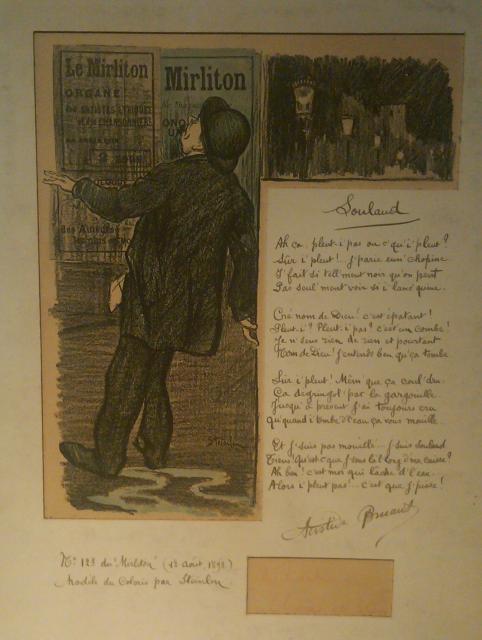 Le Mirliton
ORGANE
des ARTISTES LYRIQUES
et des CHANSONNIERS
Mirliton
des Auteurs
Steinlen
Soulaud
Ah ça, pleut-i pas ou c'qu'i pleut ?
Sûr i pleut !.. J'parie eun' chopine
I' fait si tell'ment noir qu'on peut
Pas seul'ment voir si i lancequine.
Cré nom de Dieu ! c'est épatant !
Pleut-i ? Pleut-i pas ? c'est un comble !
Je n'sens rien de rien et pourtant
Nom de Dieu ! j'entends ben qu'ça tombe
Sûr i pleut ! Mêm' que ça coul' dru.
Ça dégringol' par la gargouille
Jusqu'à présent j'ai toujours cru
qu'quand i tombe d'l'eau ça vous mouille
Et j'suis pas mouillé... j'suis soulaud
Tiens ! qu'est-c'que j'sens l'long d'ma cuisse ?
Ah ben ! c'est moi qui lâche d'l'eau...
Alors i pleut pas !.. c'est que j'pisse !
Aristide Bruant
No 123 du "Mirliton" (12 août 1892)
Modèle de Coloris par Steinlen